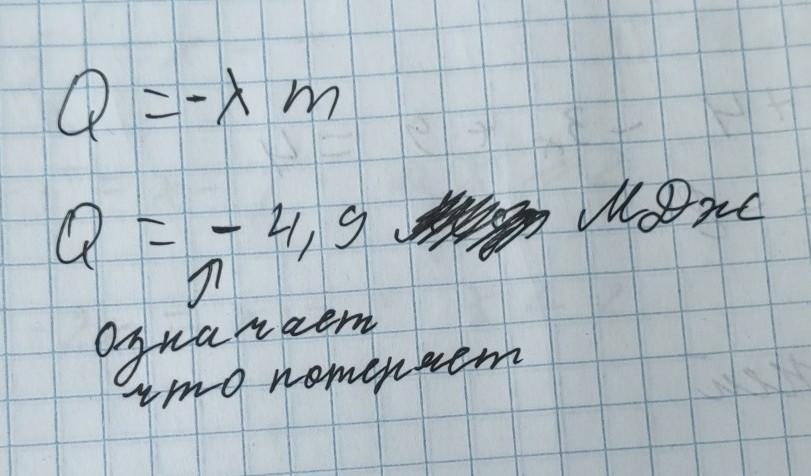 Q = - λ m
Q = - 4,9 МДж
означает
что потеряет